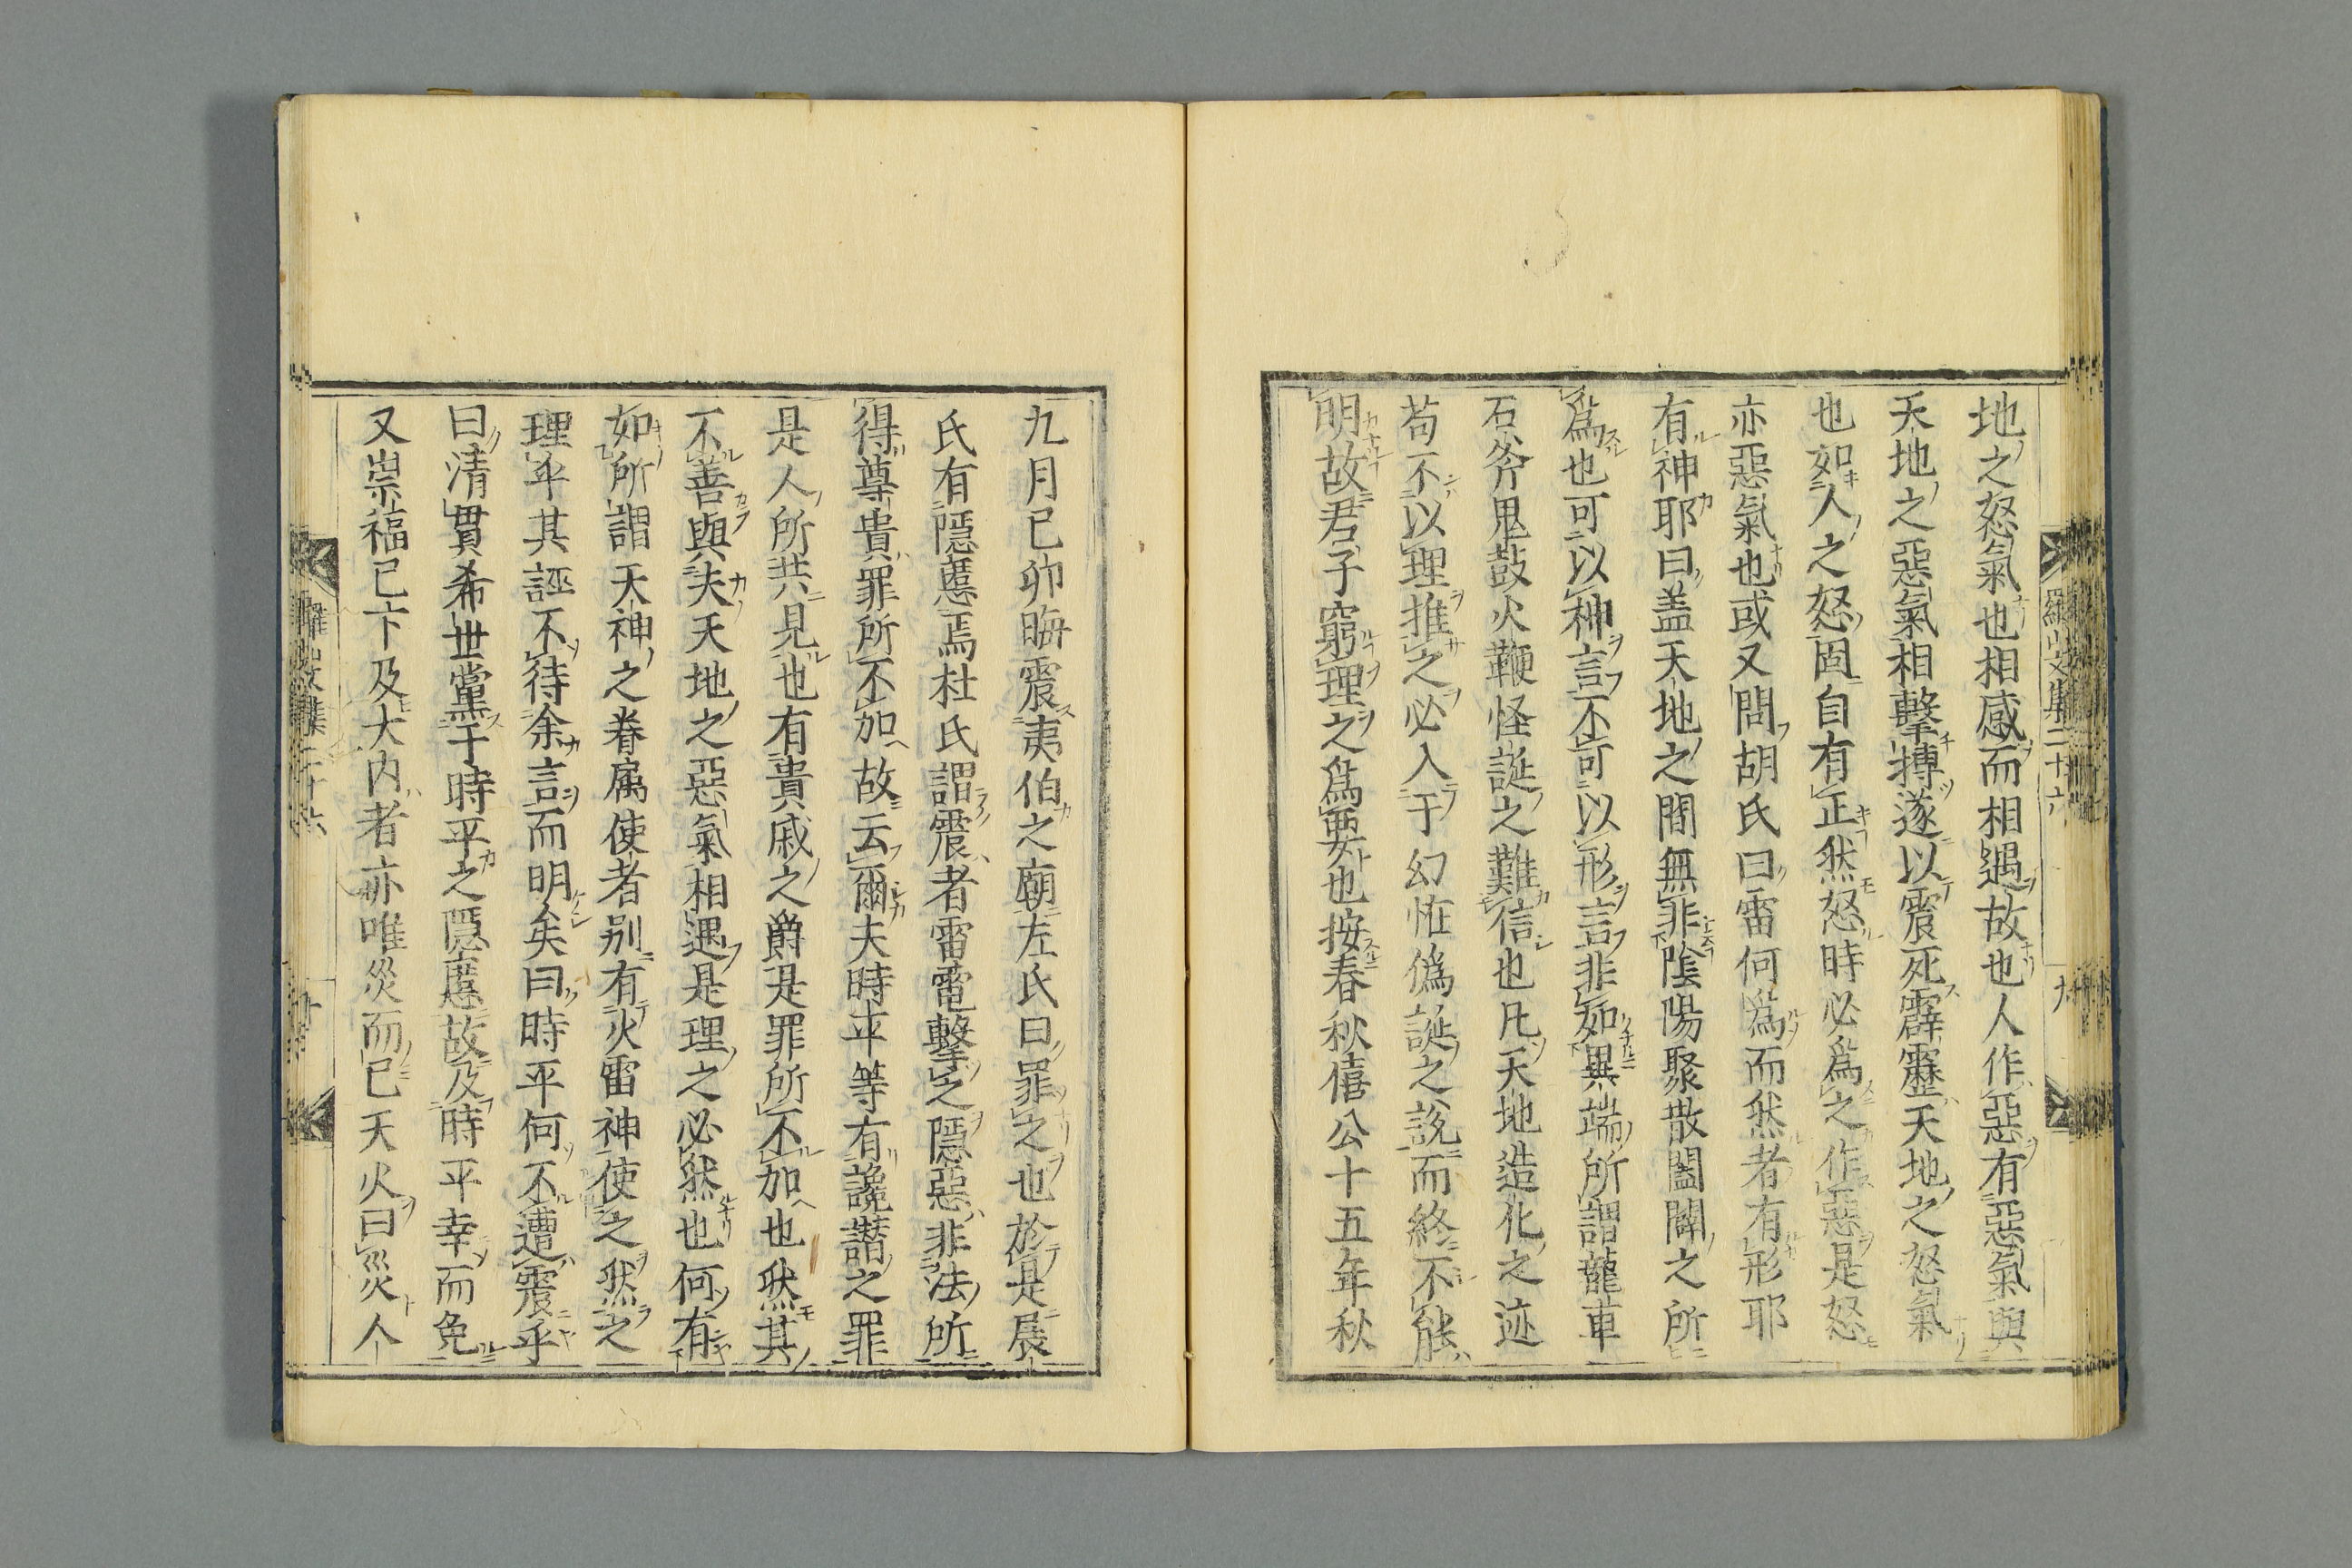 羅山文集二十六
九
地之怒氣也相感而相遇故也人作惡有惡氣與
天地之惡氣相擊搏遂以震死霹靂天地之怒氣
也如人之怒固自有正然怒時必爲之作惡是怒
亦惡氣也或又問胡氏曰雷何爲而然者有形耶
有神耶曰盖天地之間無非陰陽聚散闔闢之所
爲也可以神言不可以形言非如異端所謂龍車
石斧鬼鼓火鞭怪誕之難信也凡天地造化之迹
苟不以理推之必入于幻恠僞誕之說而終不能
明故君子窮理之爲要也按春秋僖公十五年秋
九月己卯晦震夷伯之廟左氏曰罪之也於是展
氏有隱慝焉杜氏謂震者雷電擊之隱惡非法所
得尊貴罪所不加故云爾夫時平等有讒譖之罪
是人所共見也有貴戚之爵是罪所不加也然其
不善與夫天地之惡氣相遇是理之必然也何有
如所謂天神之眷属使者别有火雷神使之然之
理乎其誣不待余言而明矣曰時平何不遭震乎
曰清貫希世黨于時平之隱慝故及時平幸而免
又崇福已下及大内者亦唯災而已天火曰災人
羅山文集二十六
十